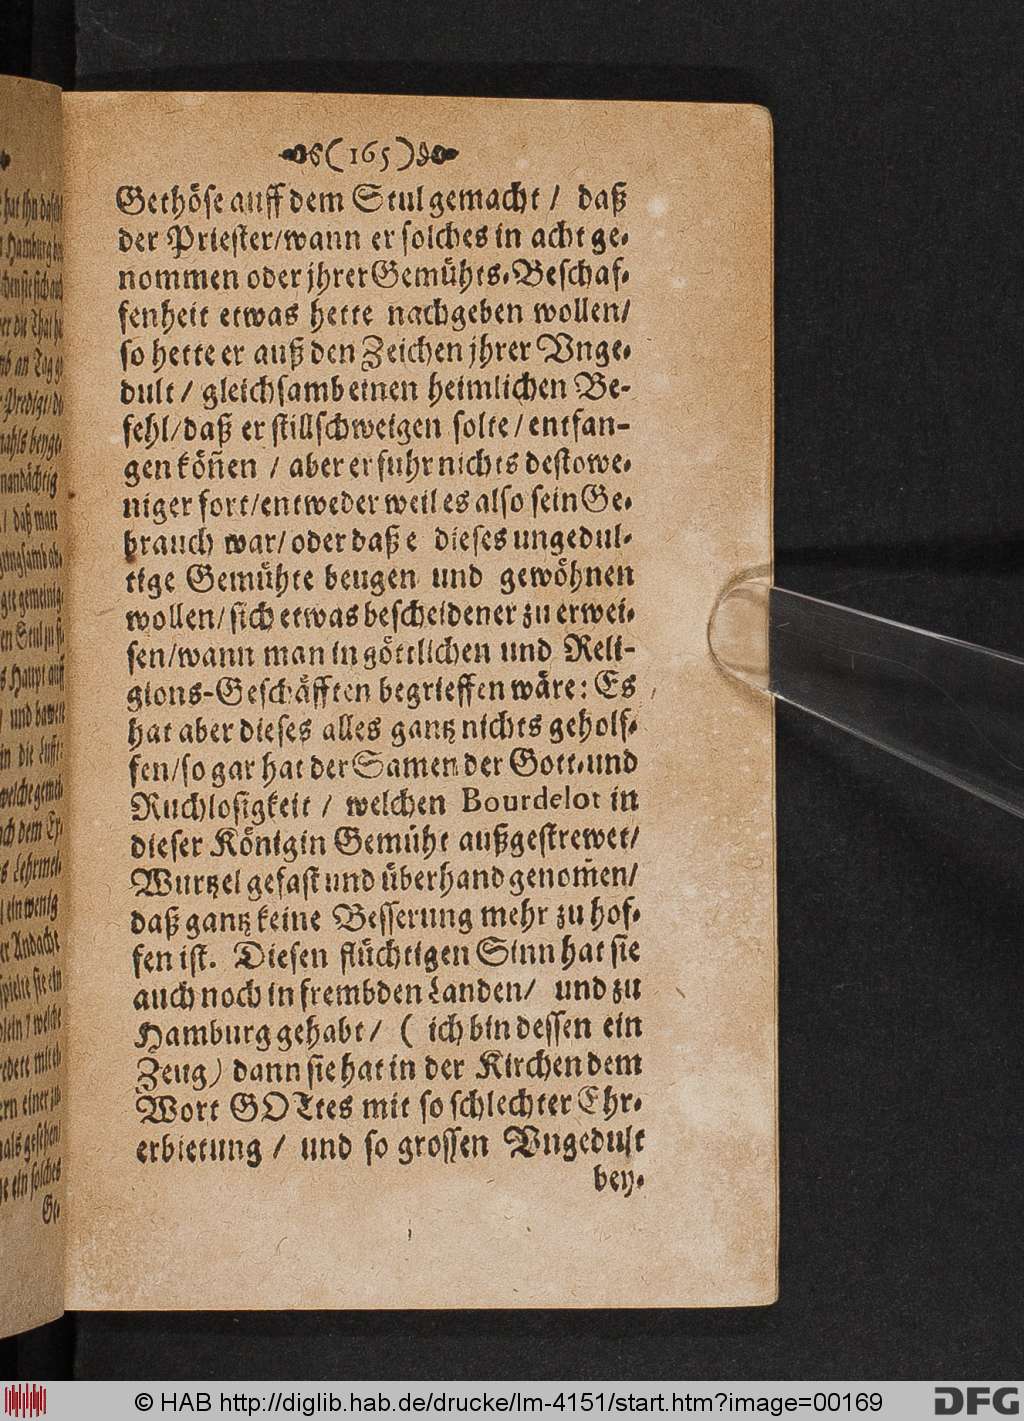 (165)
Gethöse auff dem Stul gemacht / daß
der Priester/wann er solches in acht ge-
nommen oder jhrer Gemühts-Beschaf-
fenheit etwas hette nachgeben wollen/
so hette er auß den Zeichen jhrer Vnge-
dult / gleichsamb einen heimlichen Be-
fehl/daß er stillschweigen solte/entfan-
gen köñen / aber er fuhr nichts destowe-
niger fort/entweder weil es also sein Ge-
brauch war/oder daß e dieses ungedul-
tige Gemühte beugen und gewöhnen
wollen/sich etwas bescheidener zu erwei-
sen/wann man in göttlichen und Reli-
gions-Geschäfften begrieffen wäre: Es
hat aber dieses alles gantz nichts geholf-
fen/so gar hat der Samen der Gott-und
Ruchlosigkeit / welchen Bourdelot in
dieser Königin Gemüht außgestrewet/
Wurtzel gefast und überhand genom̃en/
daß gantz keine Besserung mehr zu hof-
fen ist. Diesen flüchtigen Sinn hat sie
auch noch in frembden Landen/ und zu
Hamburg gehabt/ ( ich bin dessen ein
Zeug) dann sie hat in der Kirchen dem
Wort GOTtes mit so schlechter Ehr-
erbietung / und so grossen Vngedult
bey-
hat ihn
Hamburg
die That
an Tag
Predigt/
nandächtig
/ daß man
gemeinig-
Stul zu
Haupt auff
und
in die Lufft
welche
ach dem
Lehrmei-
ein wenig
er Andacht
spielte sie ein
welche
redete mit
ern einer
mals gesehen/
ein solches
Ge-
© HAB http://diglib.hab.de/drucke/lm-4151/start.htm?image=00169
DFG